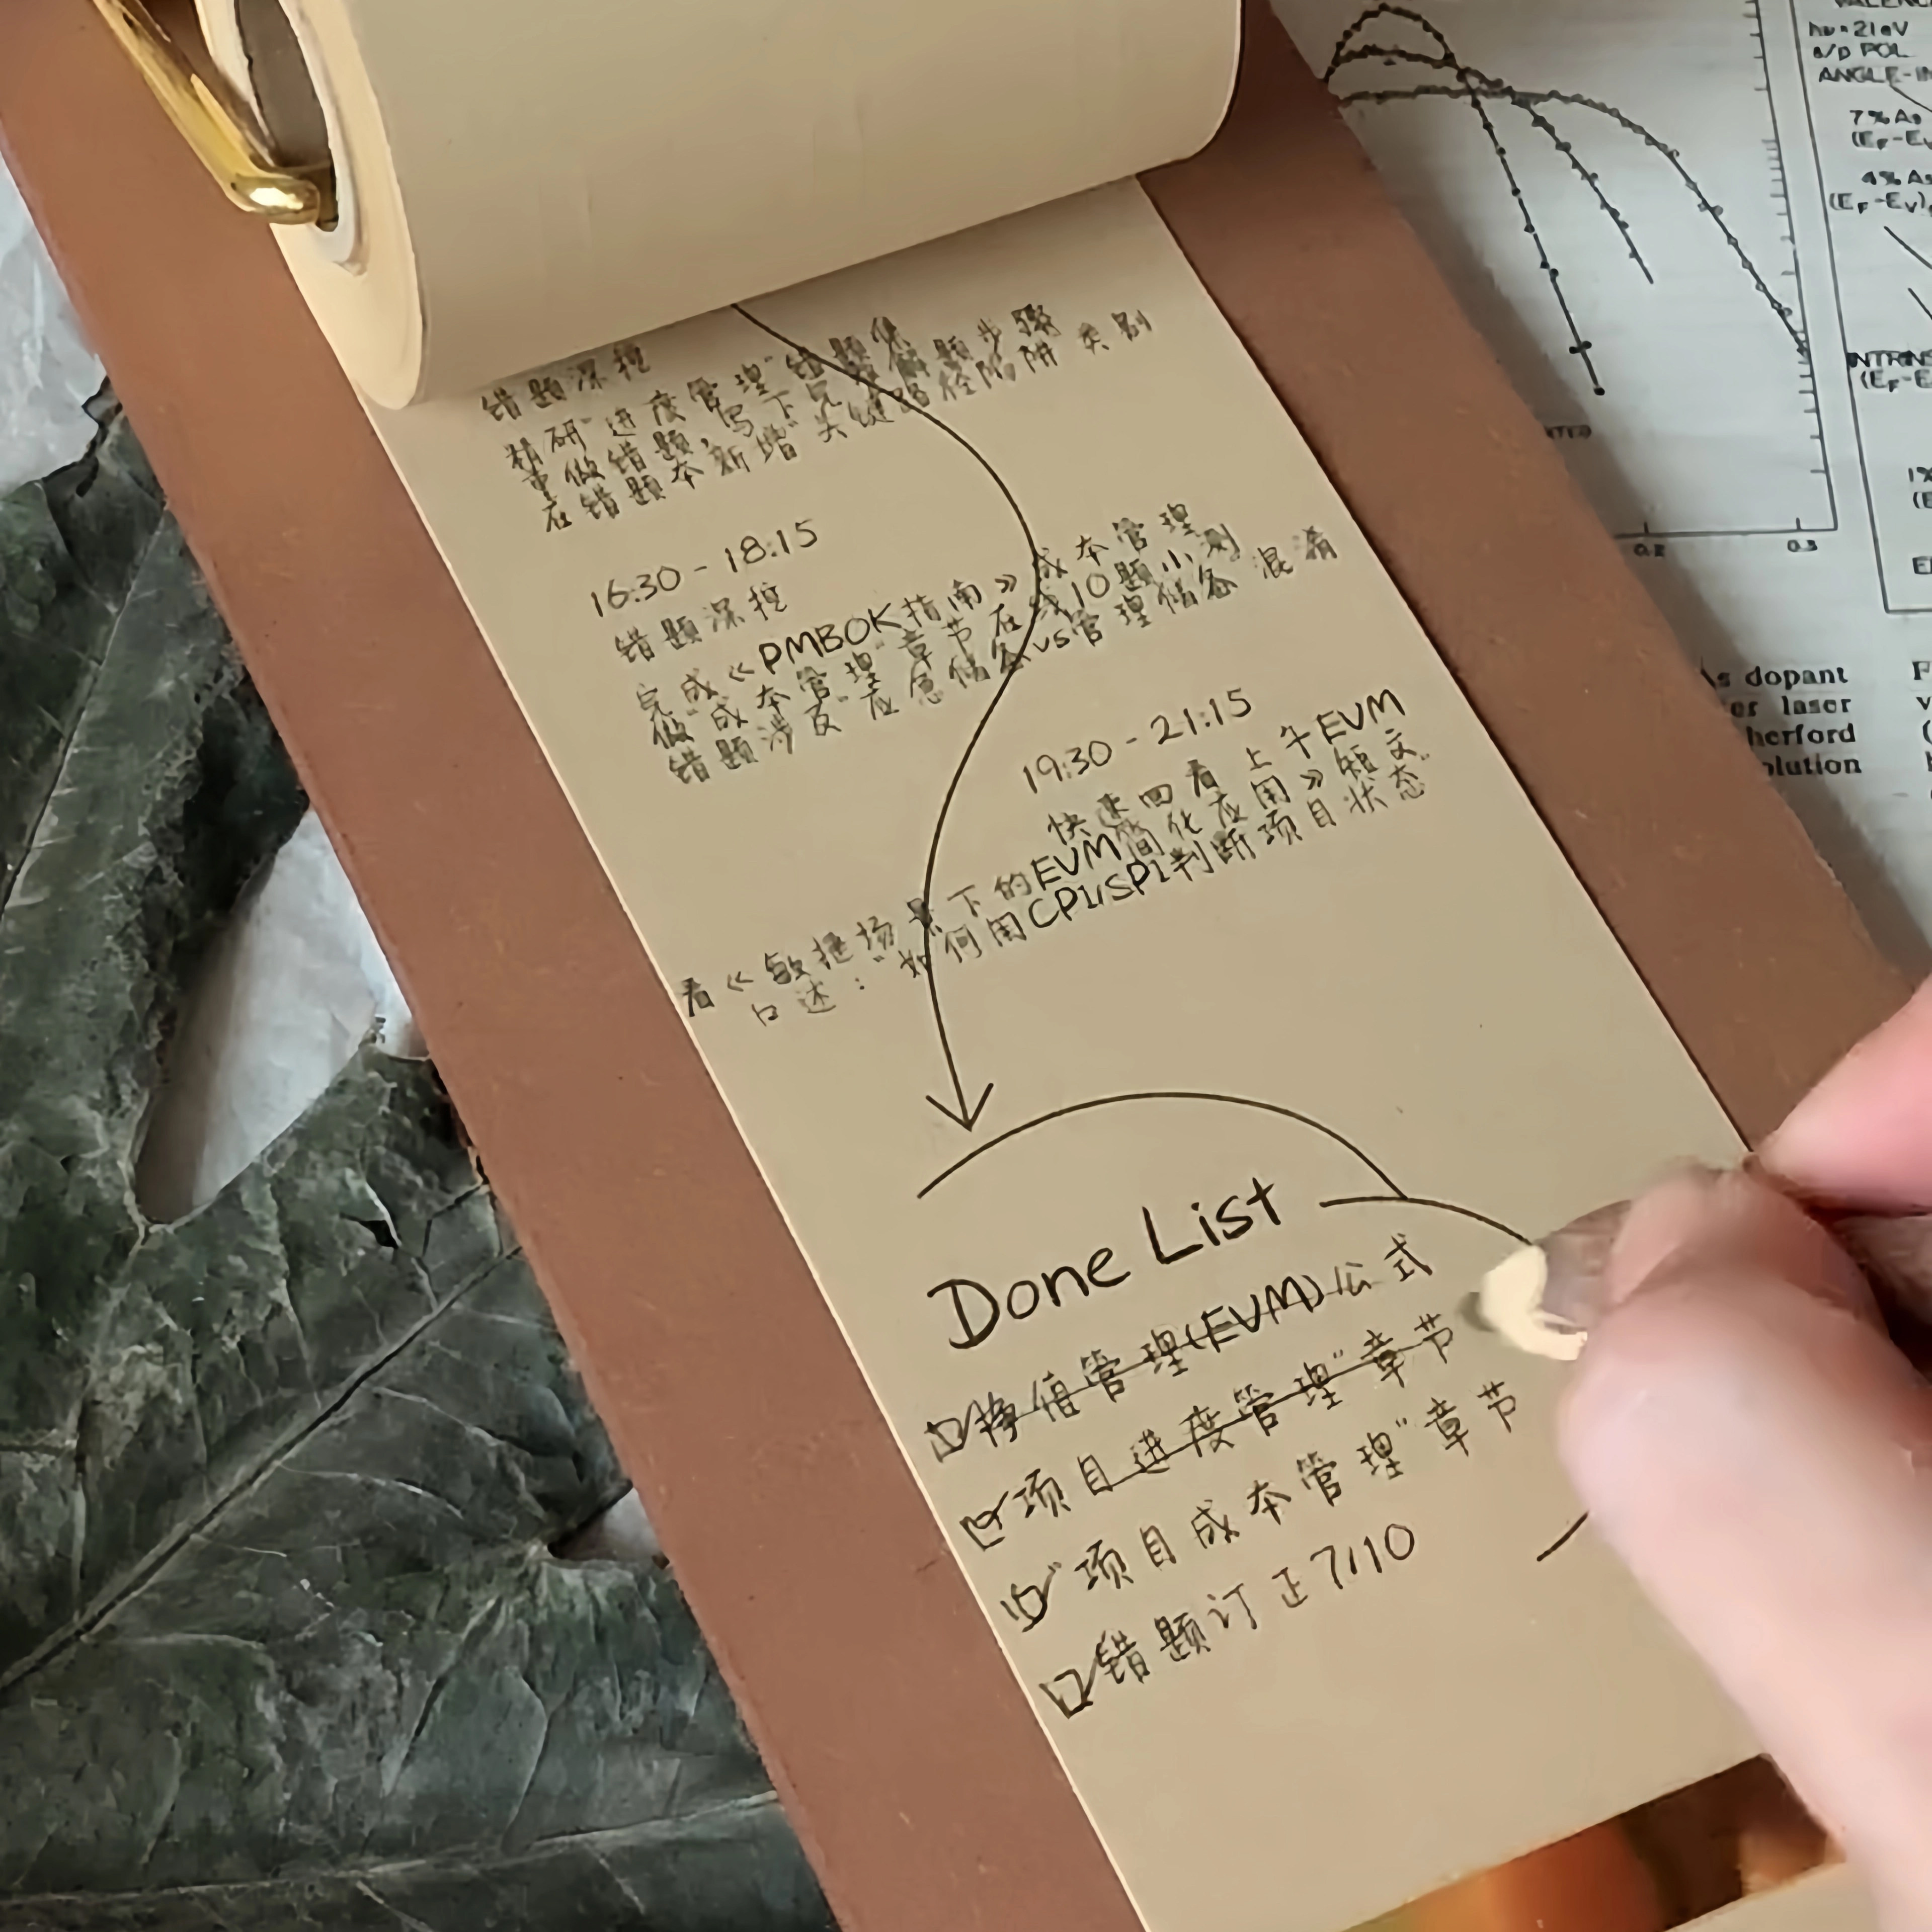 错题深挖
精研"进度管理"错题集
重做错题,写下完整解题步骤
在错题本新增"关键路径陷阱类别
16:30 - 18:15
错题深挖
完成《PMBOK指南》成本管理
做"成本管理"章节在线10题小测
错题涉及"应急储备vs管理储备混淆
19:30 - 21:15
快速回看上午EVM
看《敏捷场景下的EVM简化应用》短文
口述:"如何用CPI/SPI判断项目状态
Done List
挣值管理(EVM)公式
项目进度管理"章节
项目成本管理"章节
错题订正7/10
hν=21eV
s/p POL
ANGLE-IN
7% As
(E_F-E_V
4% As
(E_F-E_V)
INTRINS
(E_F-E
0.2
0.3
1%
(E
As dopant
er laser
herford
olution